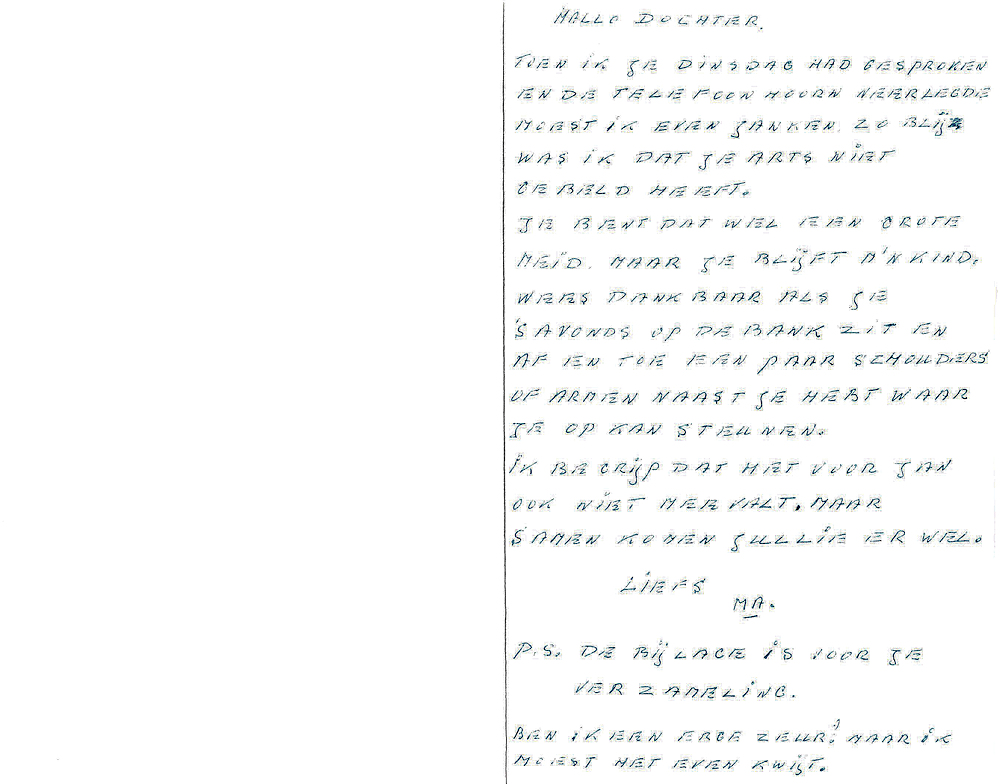 HALLO DOCHTER.
TOEN IK JE DINSDAG HAD GESPROKEN
EN DE TELEFOON HOORN NEERLEGDE
MOEST IK EVEN JANKEN. ZO BLIJ
WAS IK DAT JE ARTS NIET
GEBELD HEEFT.
JE BENT DAT WEL EEN GROTE
MEID. MAAR JE BLIJFT M'N KIND.
WEES DANKBAAR ALS JE
'S AVONDS OP DE BANK ZIT EN
AF EN TOE EEN PAAR SCHOUDERS
OF ARMEN NAAST JE HEBT WAAR
JE OP KAN STEUNEN.
IK BEGRIJP DAT HET VOOR JAN
OOK NIET MEEVALT, MAAR
SAMEN KOMEN JULLIE ER WEL.
LIEFS
MA.
P.S. DE BIJLAGE IS VOOR JE
VERZAMELING.
BEN IK EEN ERGE ZEUR? MAAR IK
MOEST HET EVEN KWIJT.